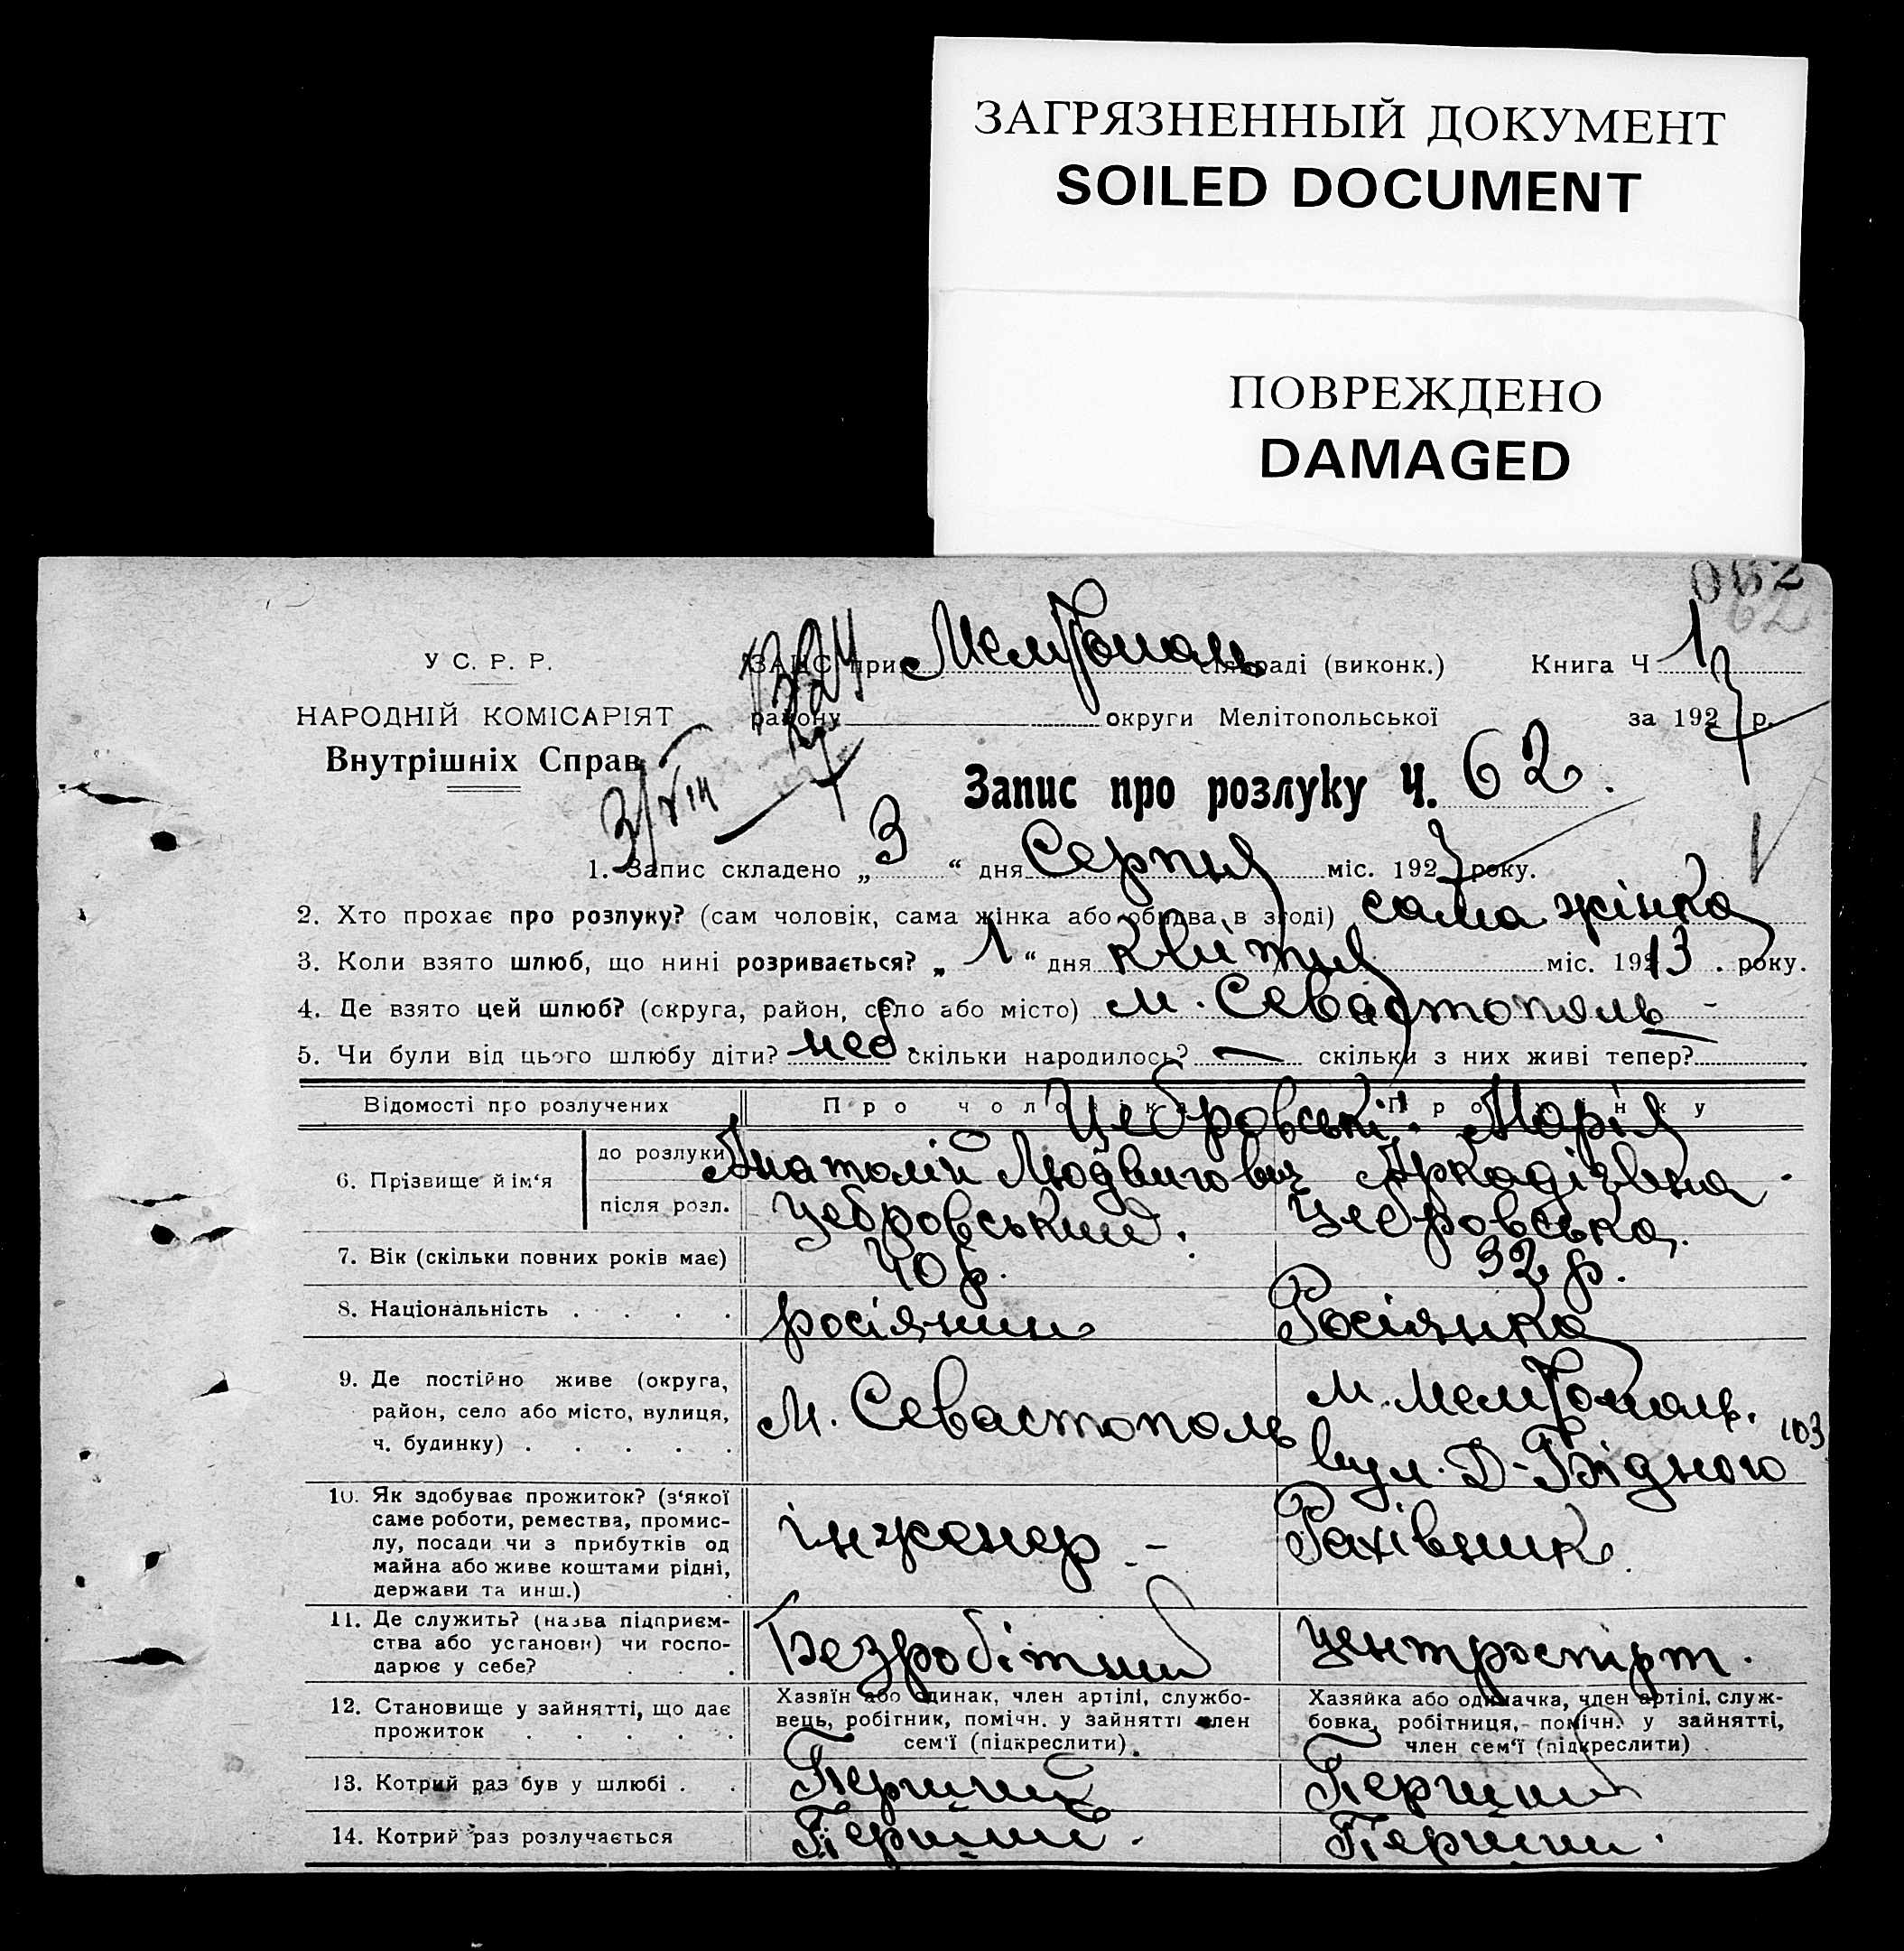 ЗАГРЯЗНЕННЫЙ ДОКУМЕНТ
SOILED DOCUMENT
ПОВРЕЖДЕНО
DAMAGED
62
У С. Р. Р.
ЗАГС при Мелітополь сільраді (виконк.) Книга Ч 1
НАРОДНІЙ КОМІСАРІЯТ
району округи Мелітопольської за 1927 р.
Внутрішніх Справ
3/VIII
Запис про розлуку Ч. 62.
1. Запис складено „ 3 “ дня Серпня міс. 1927 року.
2. Хто прохає про розлуку? (сам чоловік, сама жінка або обидва в згоді) сама жінка
3. Коли взято шлюб, що нині розривається? „ 1 “ дня квітня міс. 1913. року.
4. Де взято цей шлюб? (округа, район, село або місто) м. Севастополь -
5. Чи були від цього шлюбу діти? скільки народилось? — скільки з них живі тепер?
Відомості про розлучених Про чоловіка Про жінку
Цебровські. Марія
6. Прізвище й ім‘я до розлуки Анатолій Людвигович Аркадіївна.
після розл. Цебровський. Цебровська.
7. Вік (скільки повних років має) 40 р. 32 р.
8. Національність . . . . росіянин Росіянка
9. Де постійно живе (округа, район, село або місто, вулиця, ч. будинку) . . . . .
м. Севастополь
м. Мелітополь.
вул. Д-Бідного 103
10. Як здобуває прожиток? (з‘якої
саме роботи, ремества, промис-
лу, посади чи з прибутків од
майна або живе коштами рідні,
держави та инш.)
інженер - Рахівник
11. Де служить? (назва підприєм-
ства або установи) чи госпо-
дарює у себе? . . .
Безробітний Центроспірт.
12. Становище у зайнятті, що дає
прожиток . . . . .
Хазяїн або одинак, член артілі, службо-
вець, робітник, помічн. у зайнятті член
сем‘ї (підкреслити).
Хазяйка або одиначка, член артілі, служ-
бовка, робітниця, помічн. у зайнятті,
член сем‘ї (підкреслити)
13. Котрий раз був у шлюбі . . Перший Перший
14. Котрий раз розлучається Перший. Перший.